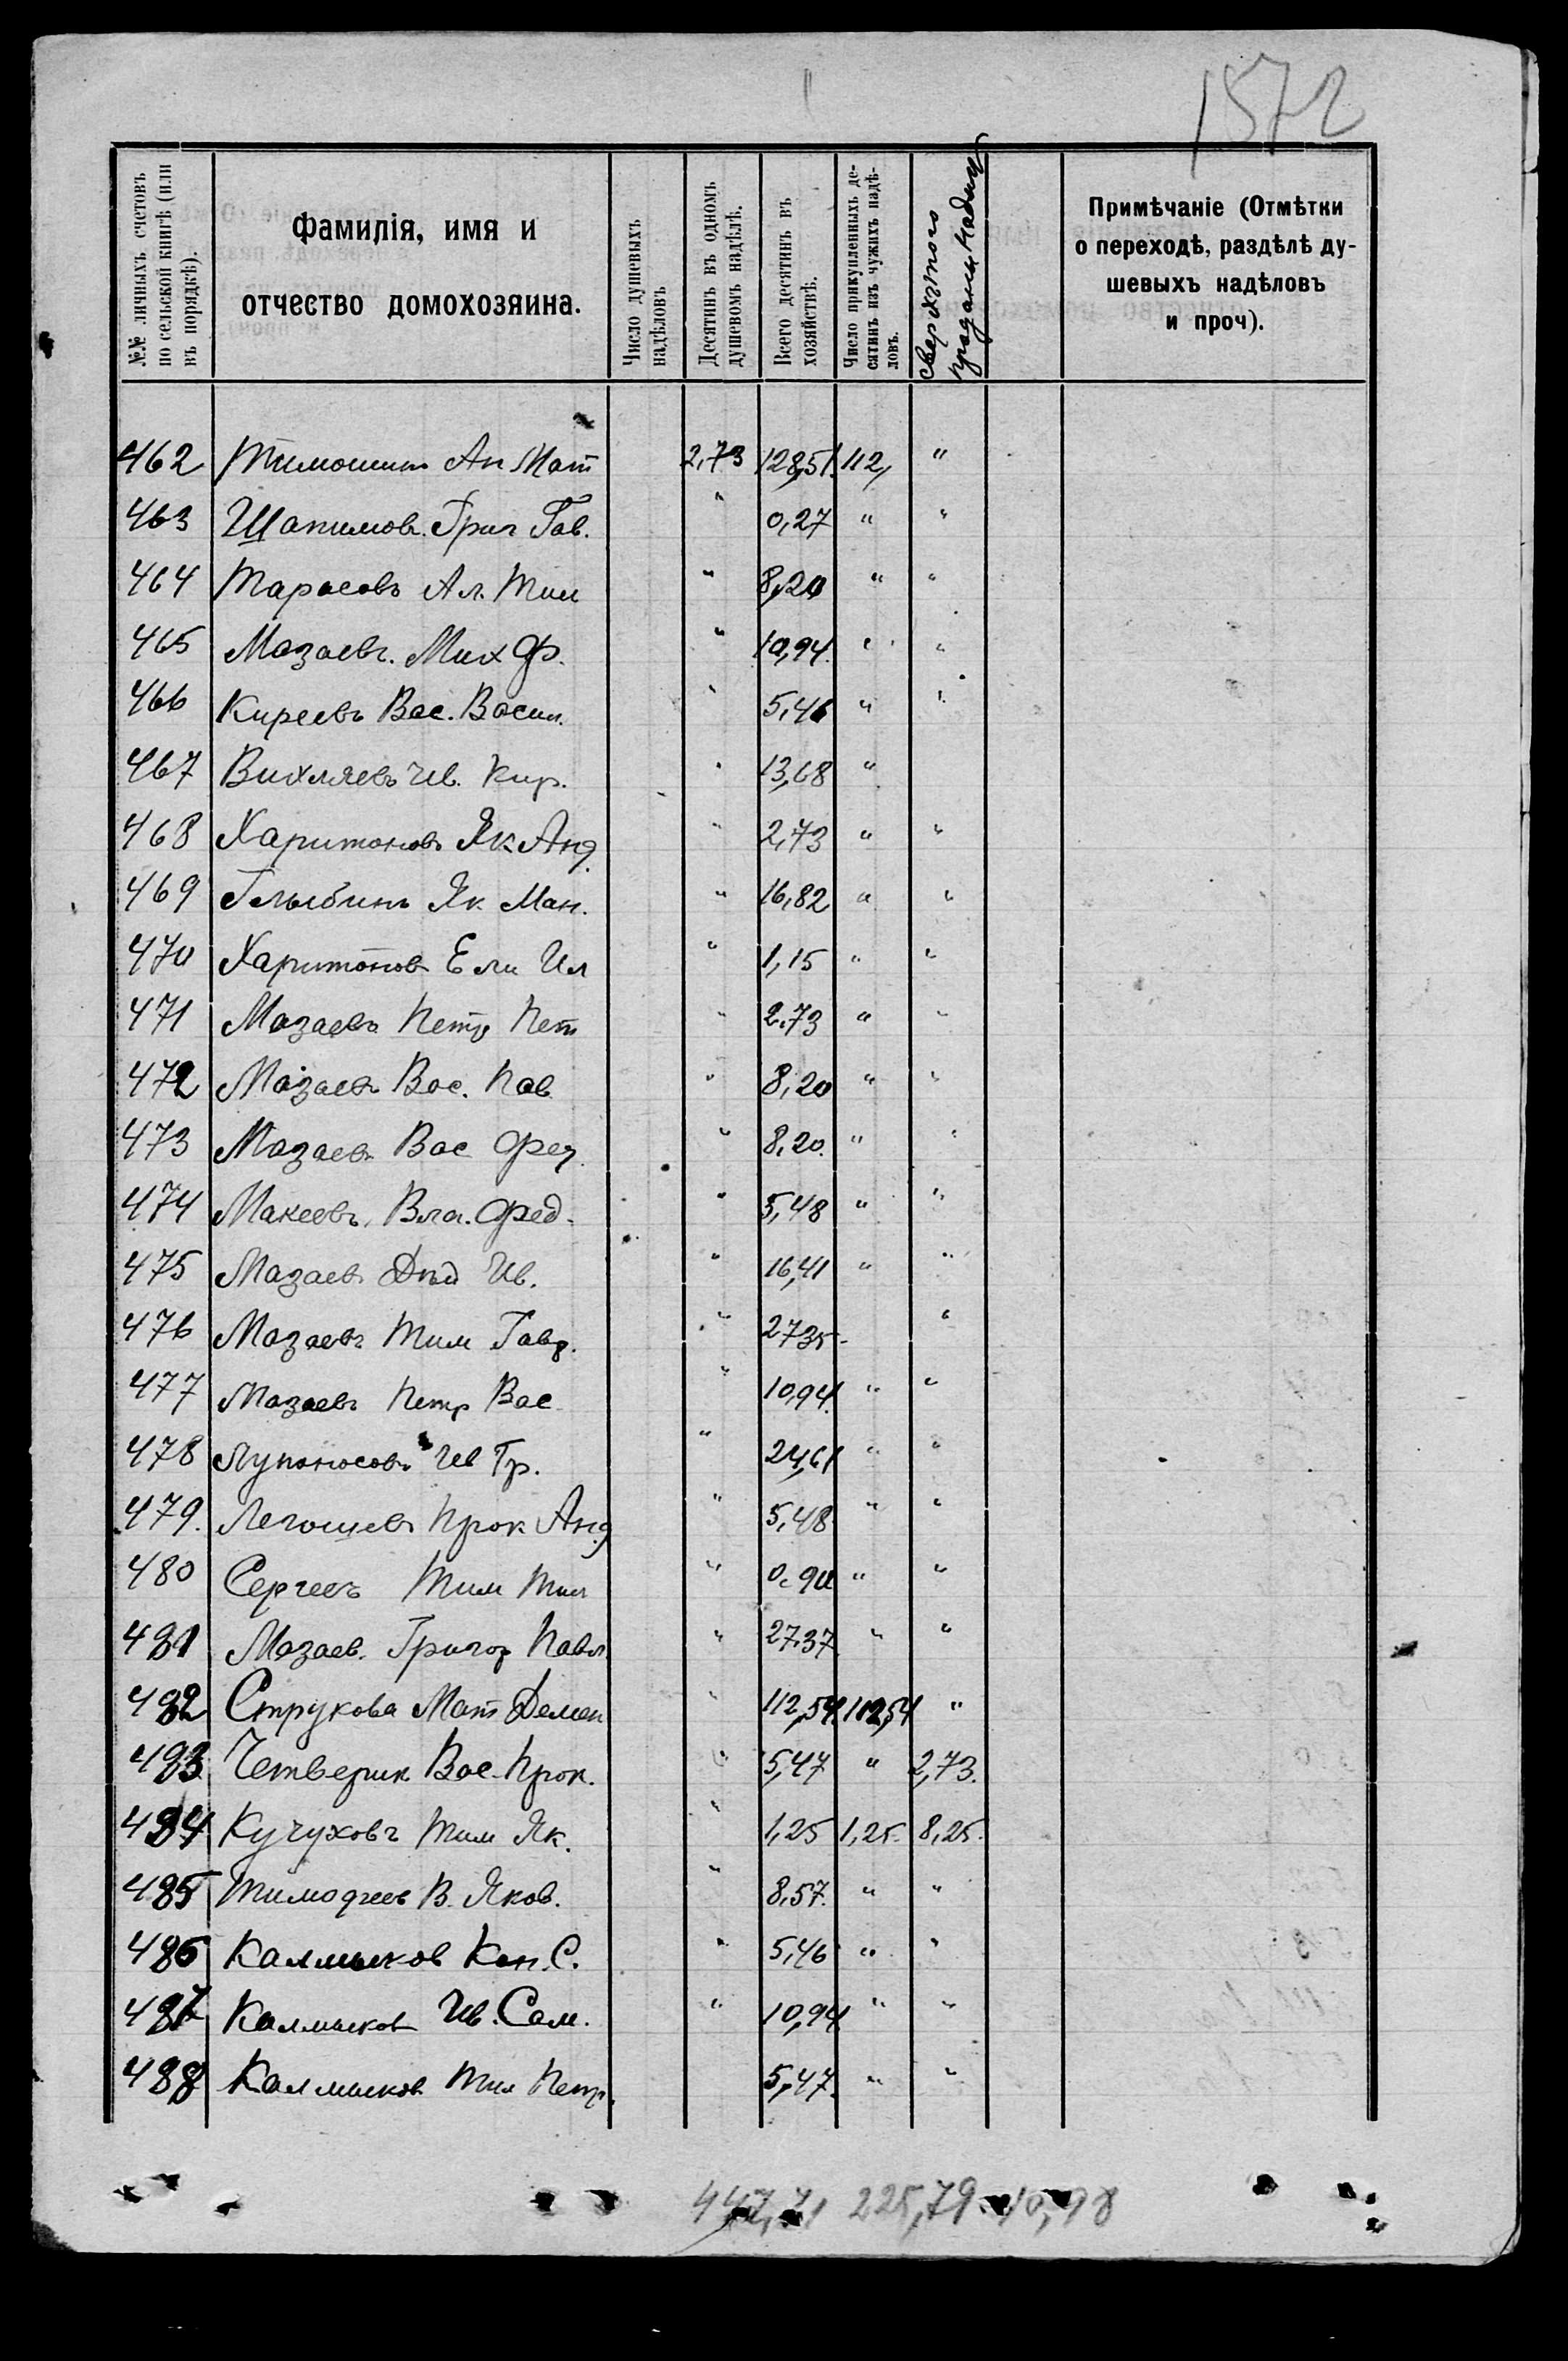 1572
№№ личныхъ счетовъ по сельской книгѣ (или въ порядкѣ).
Фамилія, имя и отчество домохозяина.
Число душевыхъ надѣловъ
Десятинъ въ одномъ душевомъ надѣлѣ.
Всего десятинъ въ хозяйствѣ.
Число прикупленныхъ десятинъ изъ чужихъ надѣловъ.
сверхъ того
Примѣчаніе (Отмѣтки о переходѣ, раздѣлѣ душевыхъ надѣловъ и проч).
462 Тимошин Ан Мат 2,73 128,51 112, "
463 Шапилов. Григ Гав. " 0,27 " "
464 Тарасовъ Ал. Тим " 8,20 " "
465 Мазаевъ. Мих Ф. " 10,94. " "
466 Киреевъ Вас. Васил. " 5,46 " "
467 Вихляевъ Ив. Кир. " 13,68 "
468 Харитоновъ Як Анд. " 2,73 " "
469 Глыбинъ Як. Ман. " 16,82 " "
470 Харитонов Ели Ил " 1,15 " "
471 Мазаевъ Петр Пет " 2.73 " "
472 Мазаевъ Вас. Пав " 8,20 " "
473 Мазаев Вас Фед. " 8,20. " "
474 Макеевъ. Вла. Фед. " 5,48 " "
475 Мазаевъ Ив. " 16,41 " "
476 Мазаевъ Тим Гавр. " 2735 - "
477 Мазаевъ Петр Вас " 10,94. " "
478 Лупоносовъ Ив Гр. " 24,61 " "
479. Легошевъ Прок Анд " 5,48 " "
480 Сергеевъ Тим Тим " 0.90 " "
481 Мазаев. Григор Павл. " 27.37 " "
482 Струкова Мат Демен " 112,54 112,54 "
483 Четверик Вас. Прок. " 5,47 " 2,73.
484 Кучуховъ Тим Як. " 1,25 1,25. 8,25.
485 Тимофеев В. Яков. " 8,57. " "
486 Калмыков Кон. С. " 5,46 " "
487 Калмыков Ив. Сам. " 10,94 " "
488 Калмыков Тим Петр. " 5,47. " "
447,71 225,79 10,98